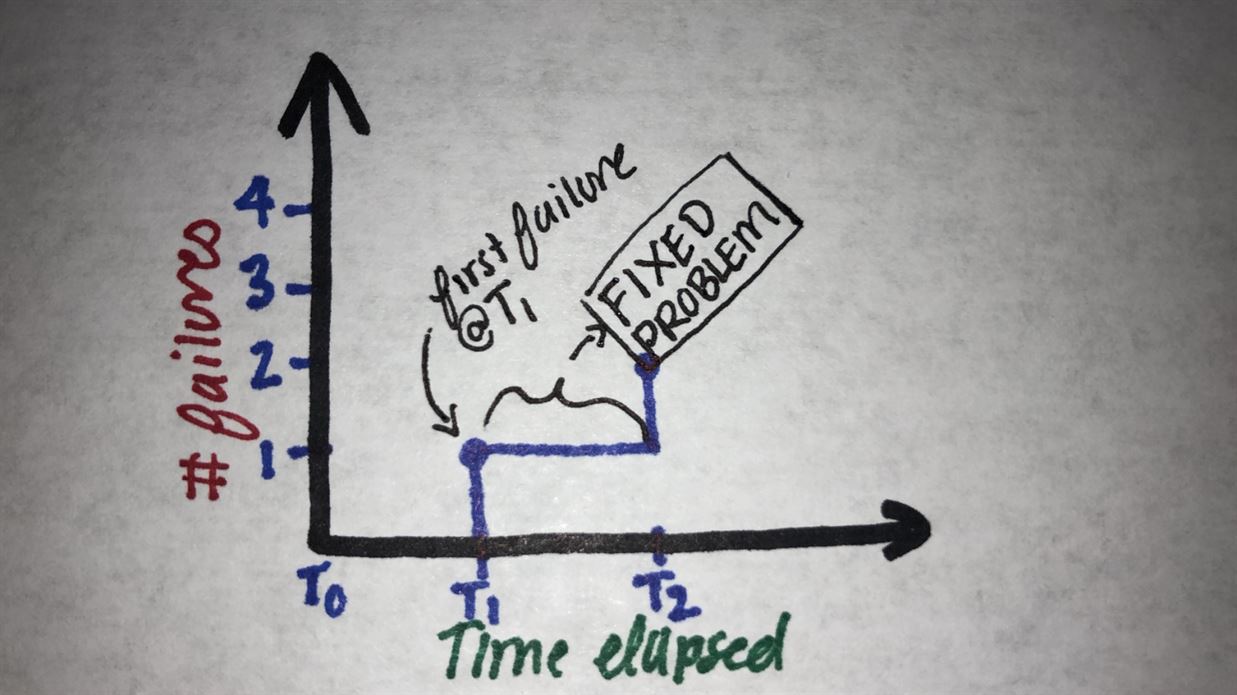 # failures
4
3
2
1
first failure
@T1
FIXED
PROBLEM
T0 T1 T2
Time elapsed